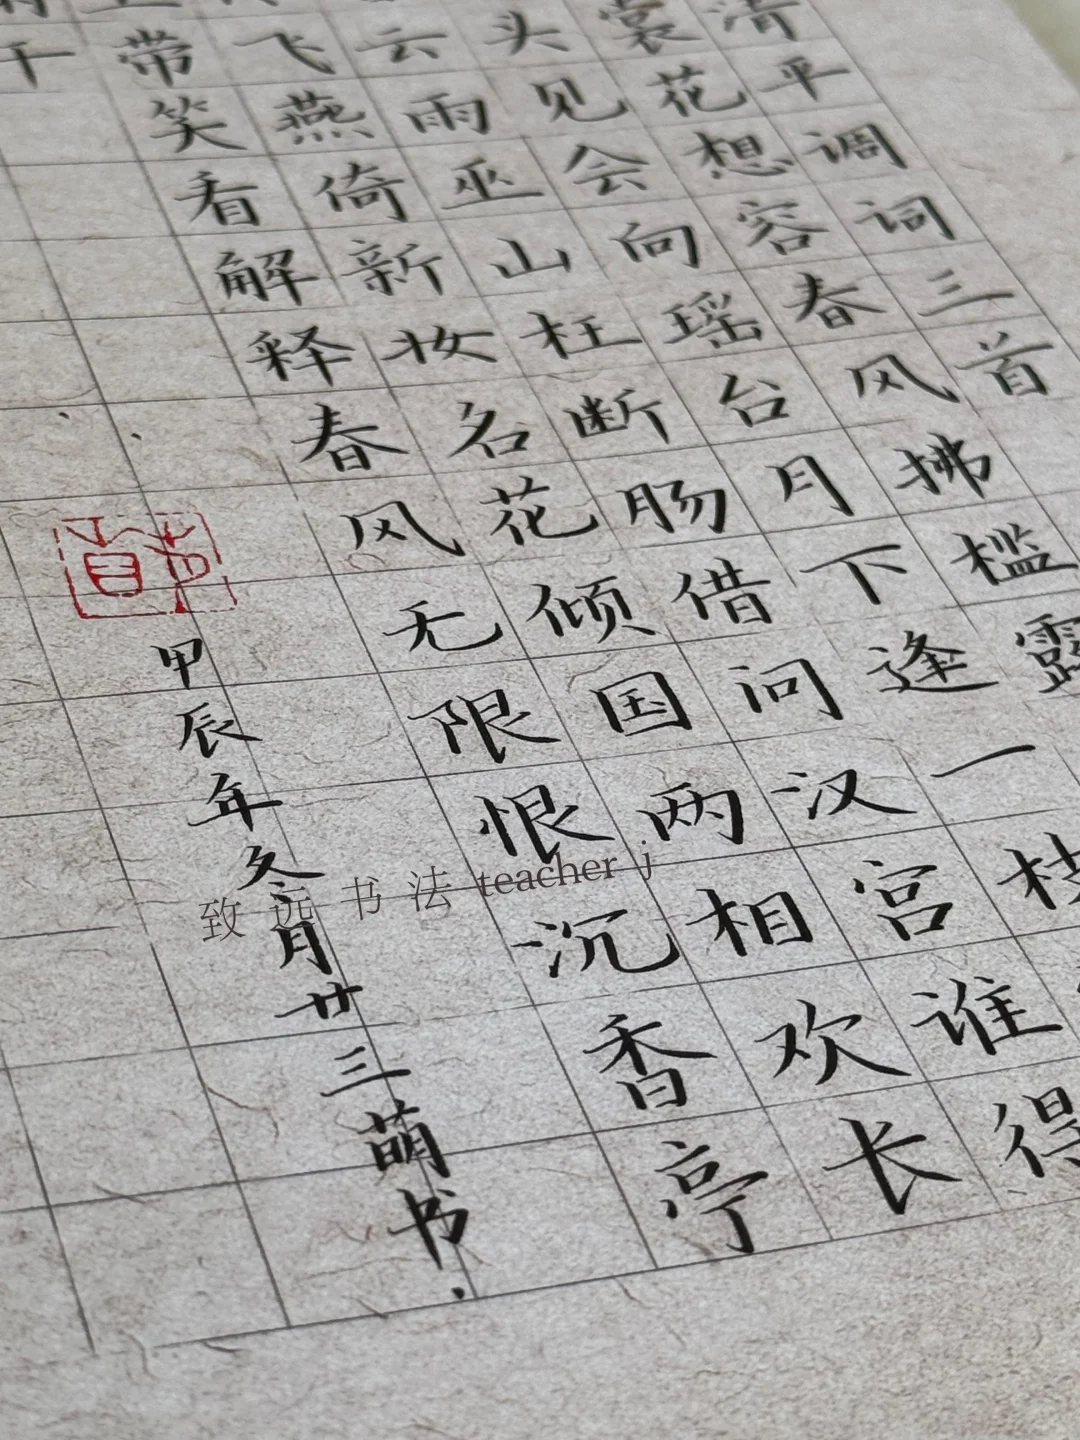 清平调词三首
裳花想容春风拂槛露
头见会向瑶台月下逢一枝
云雨巫山枉断肠借问汉宫谁得
飞燕倚新妆名花倾国两相欢长
带笑看解释春风无限恨沉香亭
干
甲辰年冬月廿三萌书
致远书法 teacher j